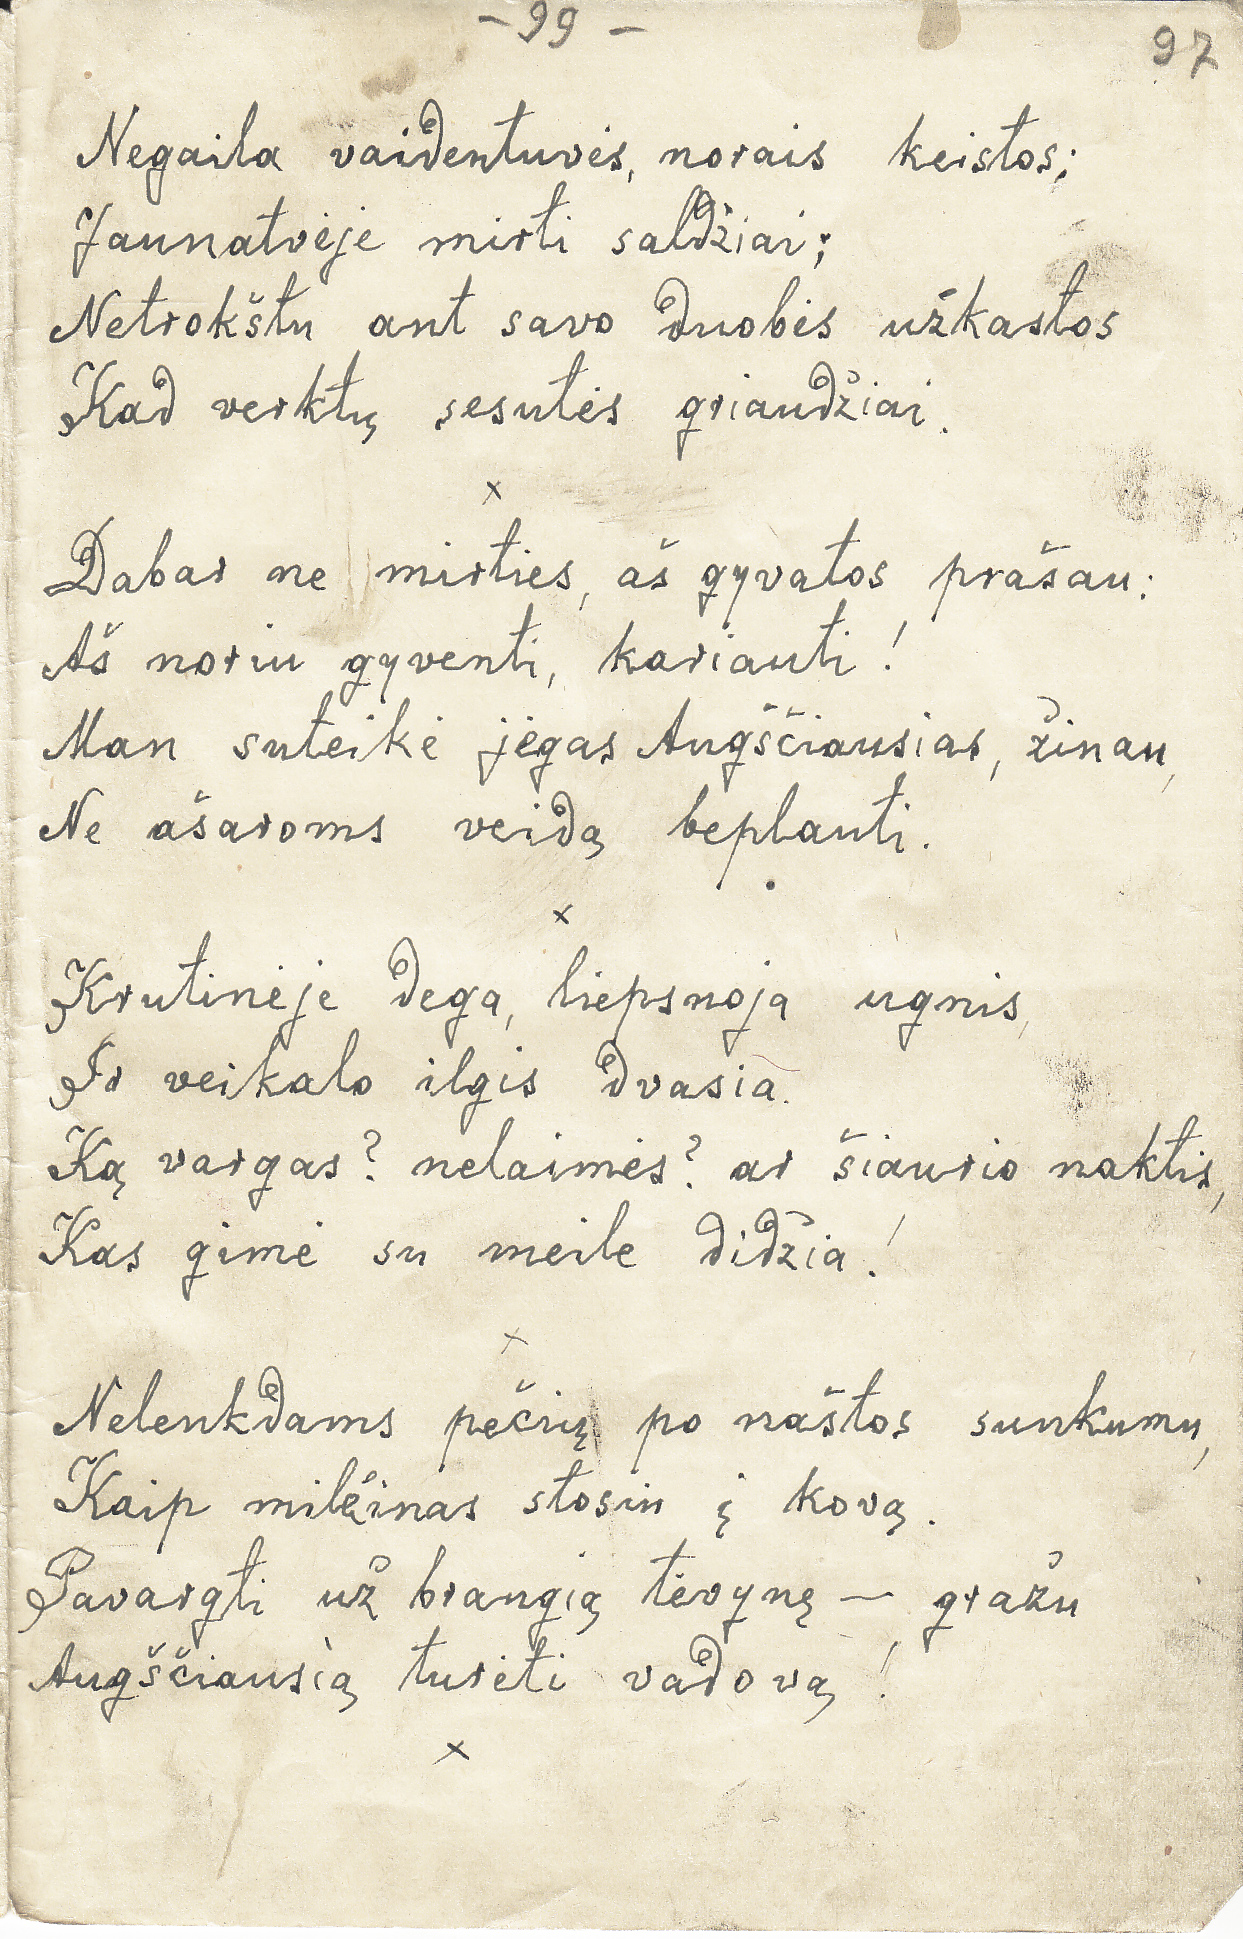 - 99 -
97
Negaila vaidentuvės, norais keistos;
Jaunatvėje mirti saldžiai;
Netrokštu ant savo duobės užkastos
Kad verktų sesutės griaudžiai.
x
Dabar ne mirties, aš gyvatos prašau:
Aš noriu gyventi, kariauti!
Man suteikė jėgas Augščiausias, žinau,
Ne ašaroms veidą beplauti.
x
Krutinėje dega, liepsnoja ugnis,
Ir veikalo ilgis dvasia.
Ką vargas? nelaimės? ar šiaurio naktis,
Kas gimė su meile didžia!
x
Nelenkdams pečių po naštos sunkumu,
Kaip milžinas stosiu į kovą.
Pavargti už brangią tėvynę — gražu
Augščiausią turėti vadovą!
x